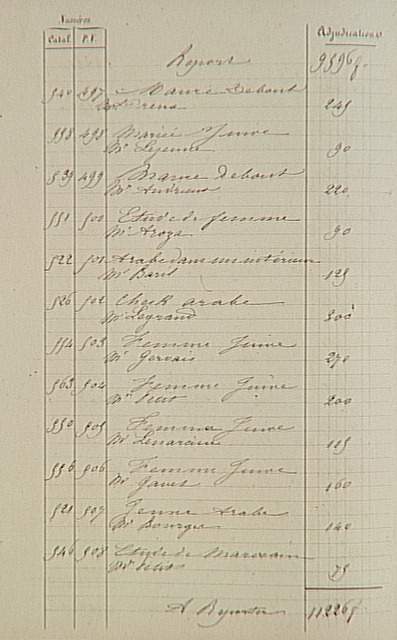 Numéros
Catal. P.V. Adjudications
Report 9296f
540 497 Maure Debout
245
558 498 Mariée Juive
Mr Lejeune 90
539 499 Maure Debout
Mr Andrieux 220
551 500 Etude de femme
Mr Aroza 90
522 501 Arabe dans un intérieur
Mr Baril 125
526 502 Cheik arabe
Mr Legrand 200
554 503 Femme Juive
Mr Gervais 270
563 504 Femme Juive
Mr Petit 200
550 505 Femme Juive
Mr 115
556 506 Femme Juive
Mr Gavet 160
521 507 Jeune Arabe
Mr Bourges 140
546 508 Etude de Marocain
Mr Petit 75
A Reporter 11226f